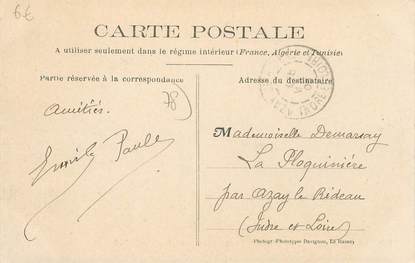 6€
CARTE POSTALE
A utiliser seulement dans le régime intérieur (France, Algérie et Tunisie)
Partie réservée à la correspondance
Adresse du destinataire
78
Amitiés.
Emily Paule
Mademoiselle Demarsay
La Ploquinière
par Azay le Rideau
(Indre et Loire)